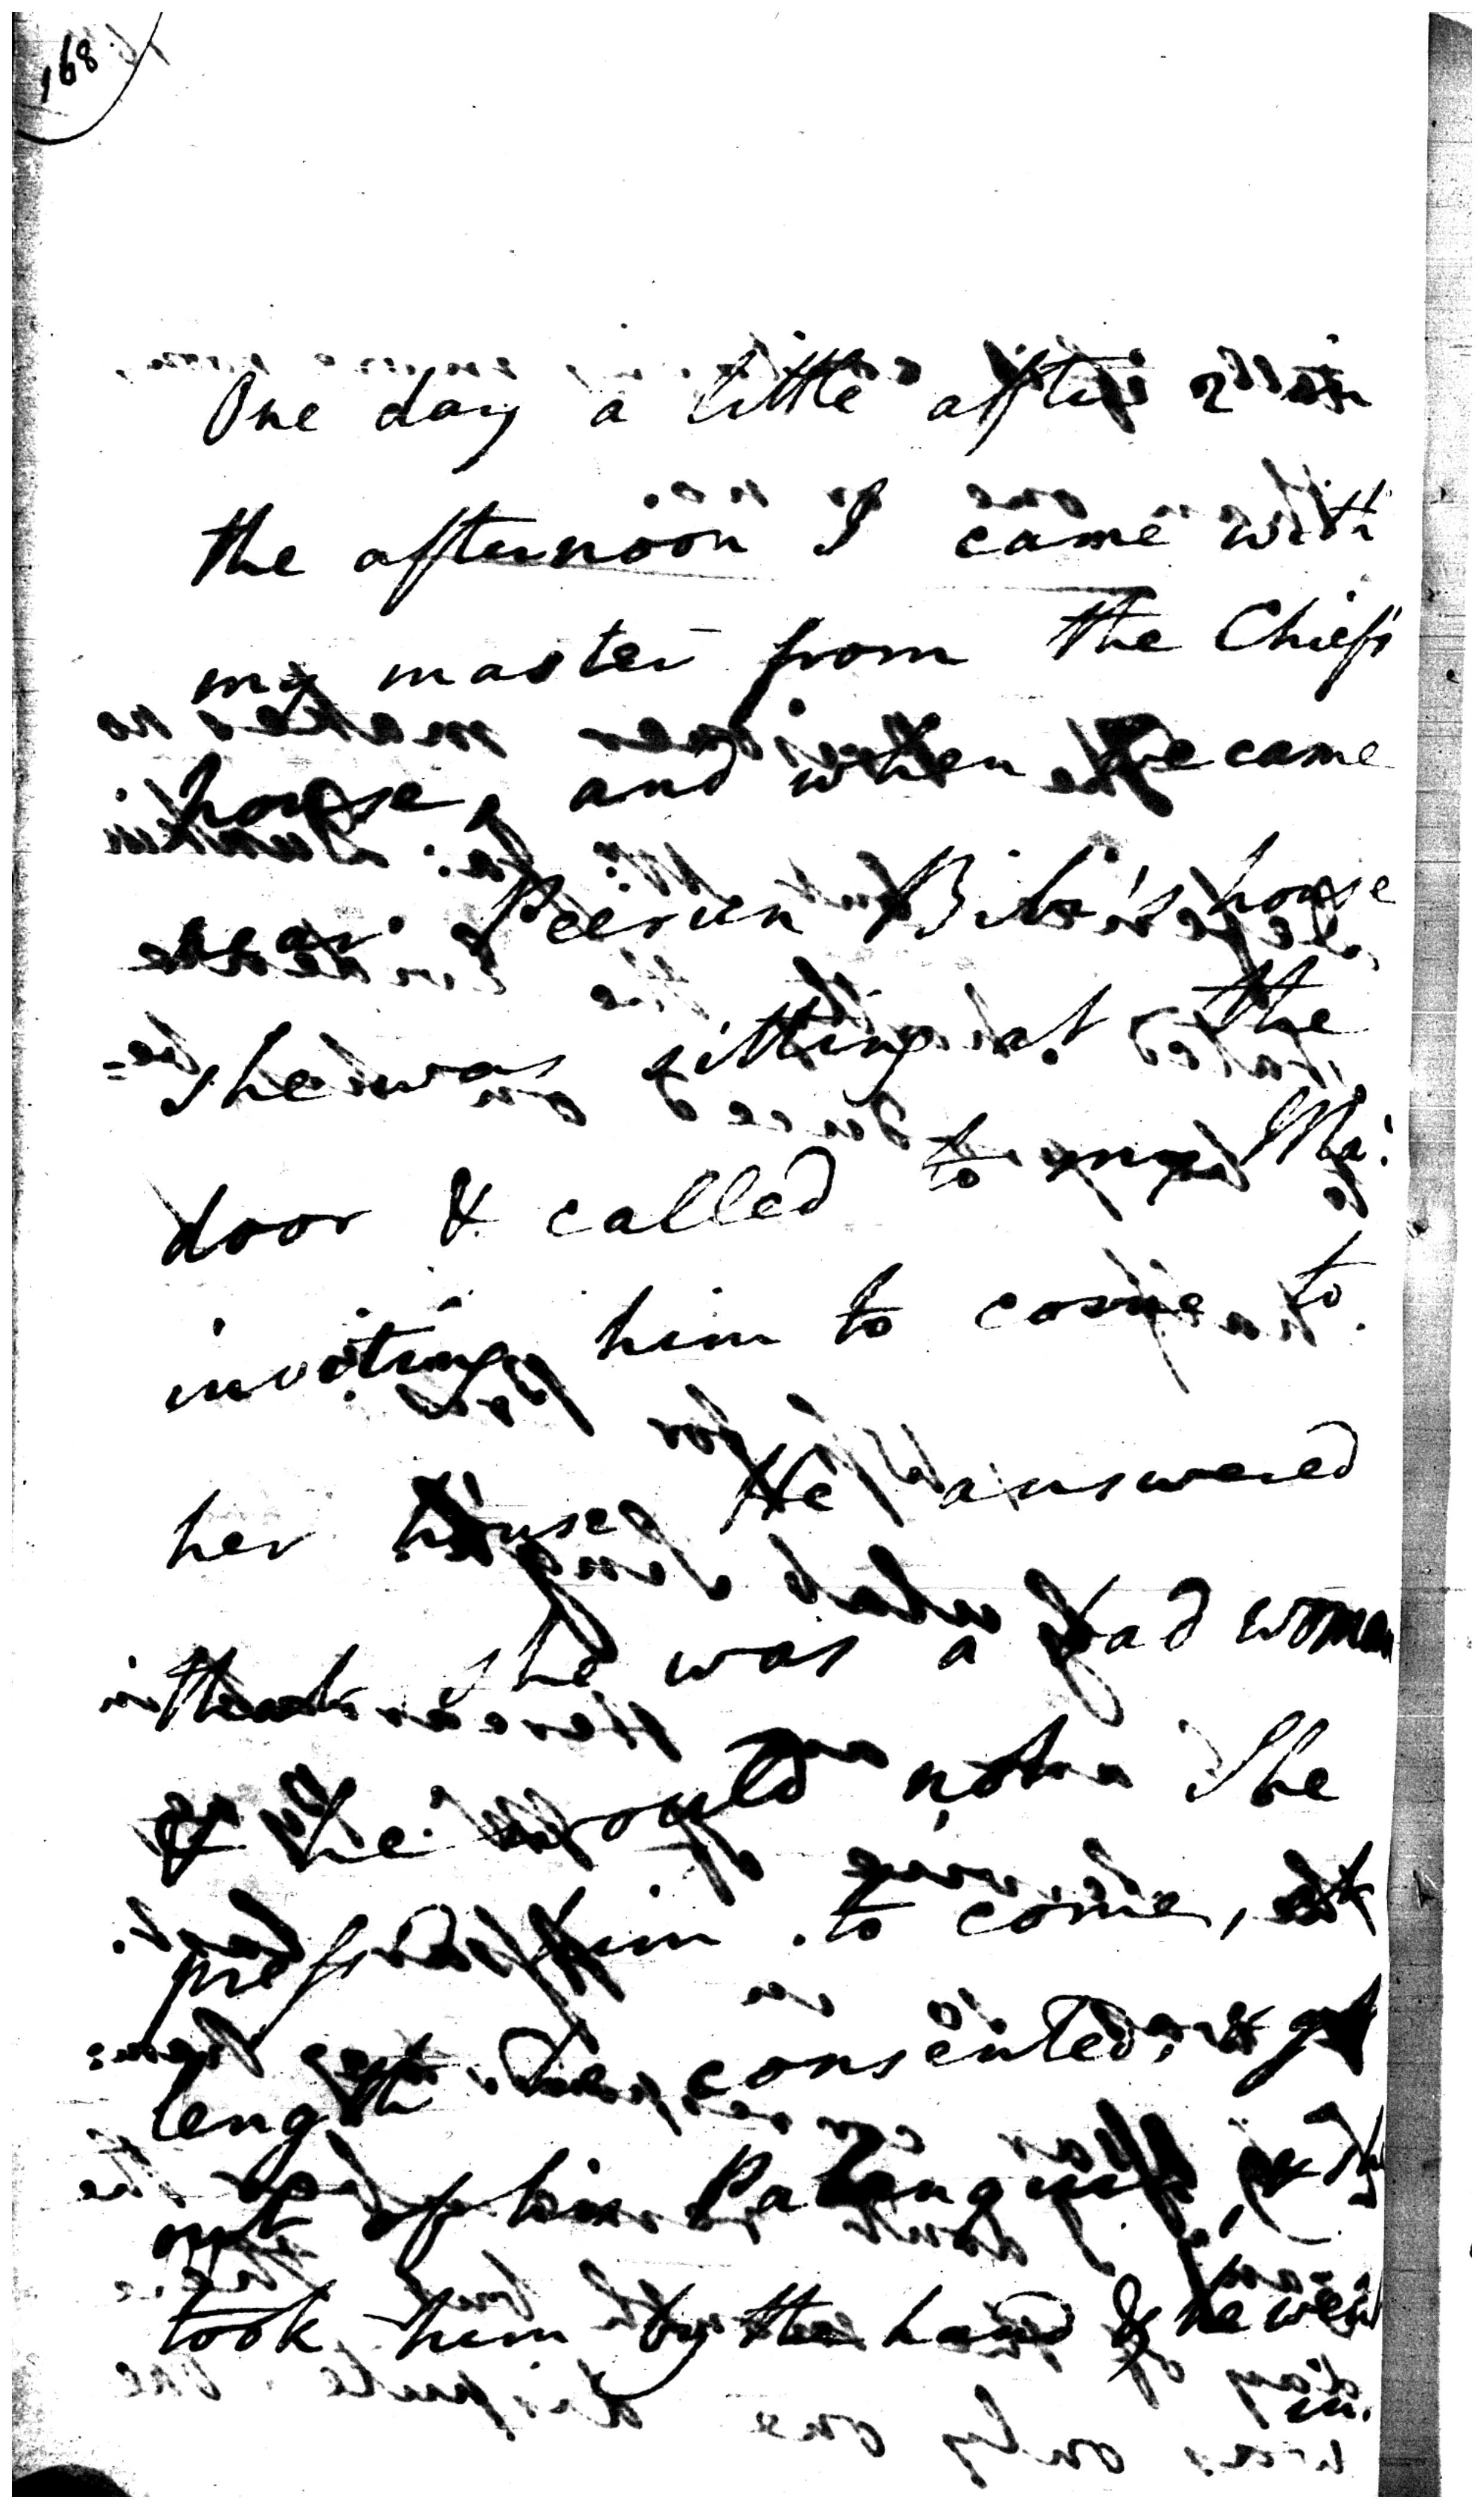 168
One day a little after 2 in
the afternoon I came with
my master from the Chief's
house, and when we came
near Peerun Bibi's house
she was sitting at the
door & called to my Mr:
inviting him to come to
her house. He answered
that she was a bad woman
& he would not. She
press'd him to come, at
length he consented, & got
out of his Palanquin, & she
took him by the hand & he went
in.